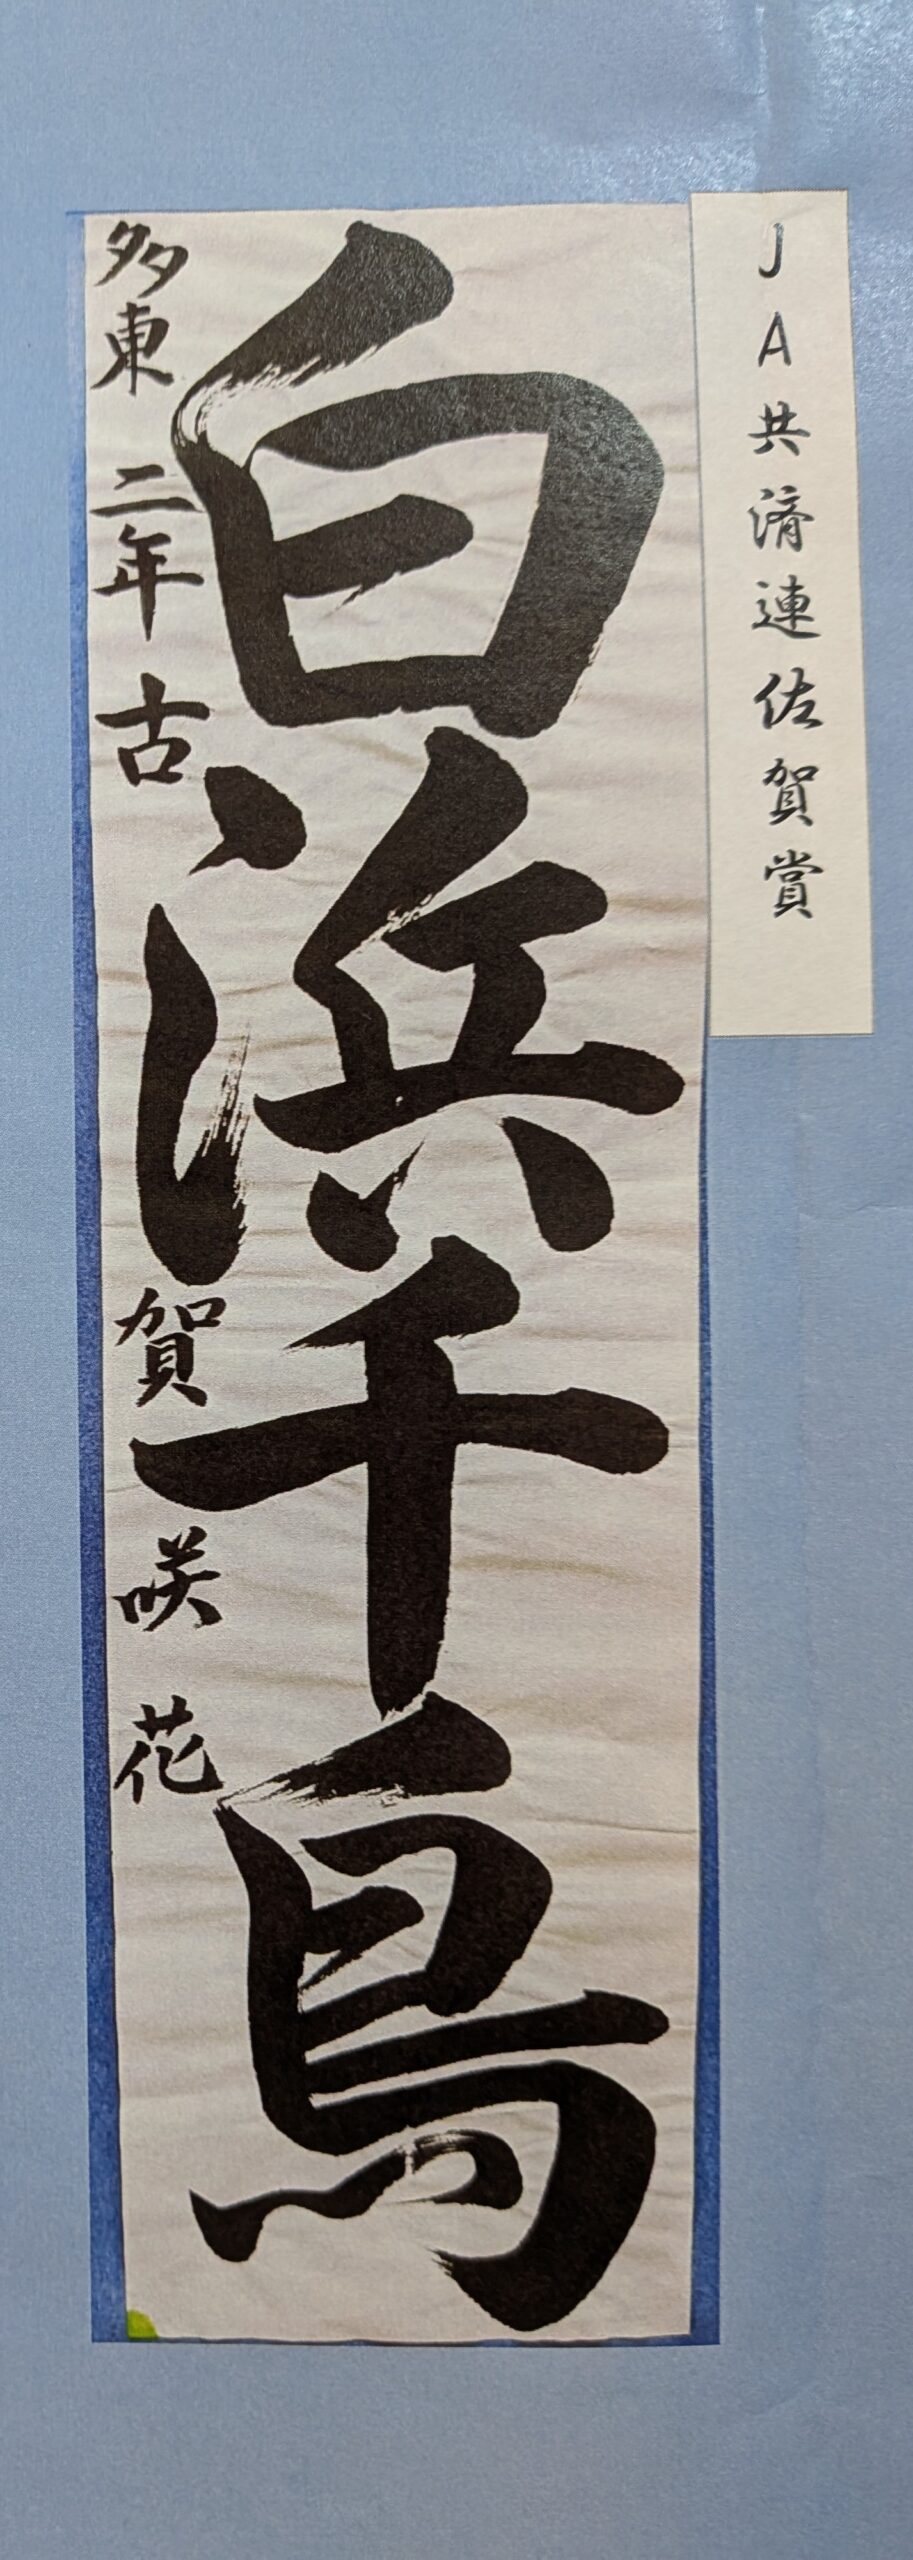 JA共済連佐賀賞
白浜千鳥
多東 二年 古賀咲花